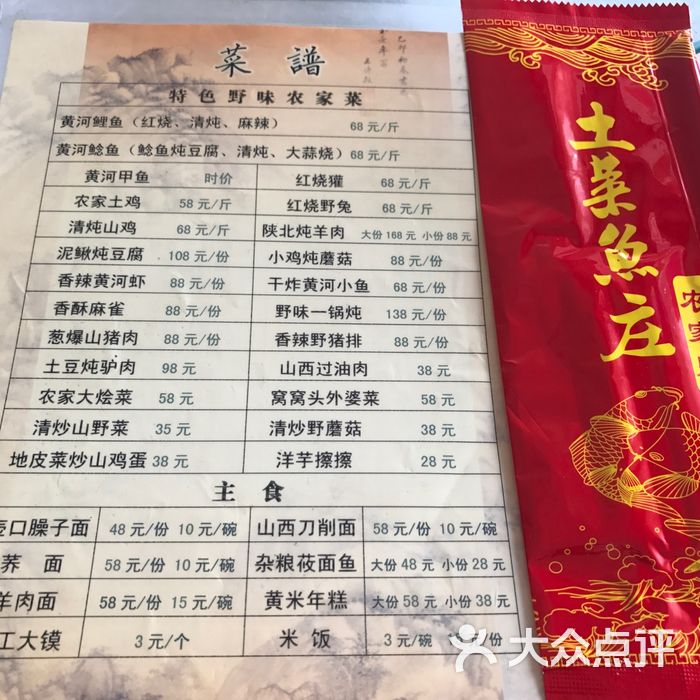 菜譜
特色野味农家菜
黄河鲤鱼（红烧、清炖、麻辣） 68 元/斤
黄河鲶鱼（鲶鱼炖豆腐、清炖、大蒜烧） 68 元/斤
黄河甲鱼 时价 红烧獾 68 元/斤
农家土鸡 58 元/斤 红烧野兔 68 元/斤
清炖山鸡 68 元/斤 陕北炖羊肉 大份 168 元 小份 88 元
泥鳅炖豆腐 108 元/份 小鸡炖蘑菇 88 元/份
香辣黄河虾 88 元/份 干炸黄河小鱼 68 元/份
香酥麻雀 88 元/份 野味一锅炖 138 元/份
葱爆山猪肉 88 元/份 香辣野猪排 88 元/份
土豆炖驴肉 98 元 山西过油肉 38 元
农家大烩菜 58 元 窝窝头外婆菜 58 元
清炒山野菜 35 元 清炒野蘑菇 38 元
地皮菜炒山鸡蛋 38 元 洋芋擦擦 28 元
主食
壶口臊子面 48 元/份 10 元/碗 山西刀削面 58 元/份 10 元/碗
荞面 58 元/份 10 元/碗 杂粮莜面鱼 大份 48 元 小份 28 元
羊肉面 58 元/份 15 元/碗 黄米年糕 大份 58 元 小份 38 元
工大馍 3 元/个 米饭 3 元/碗 份
土菜鱼庄
农家
大众点评